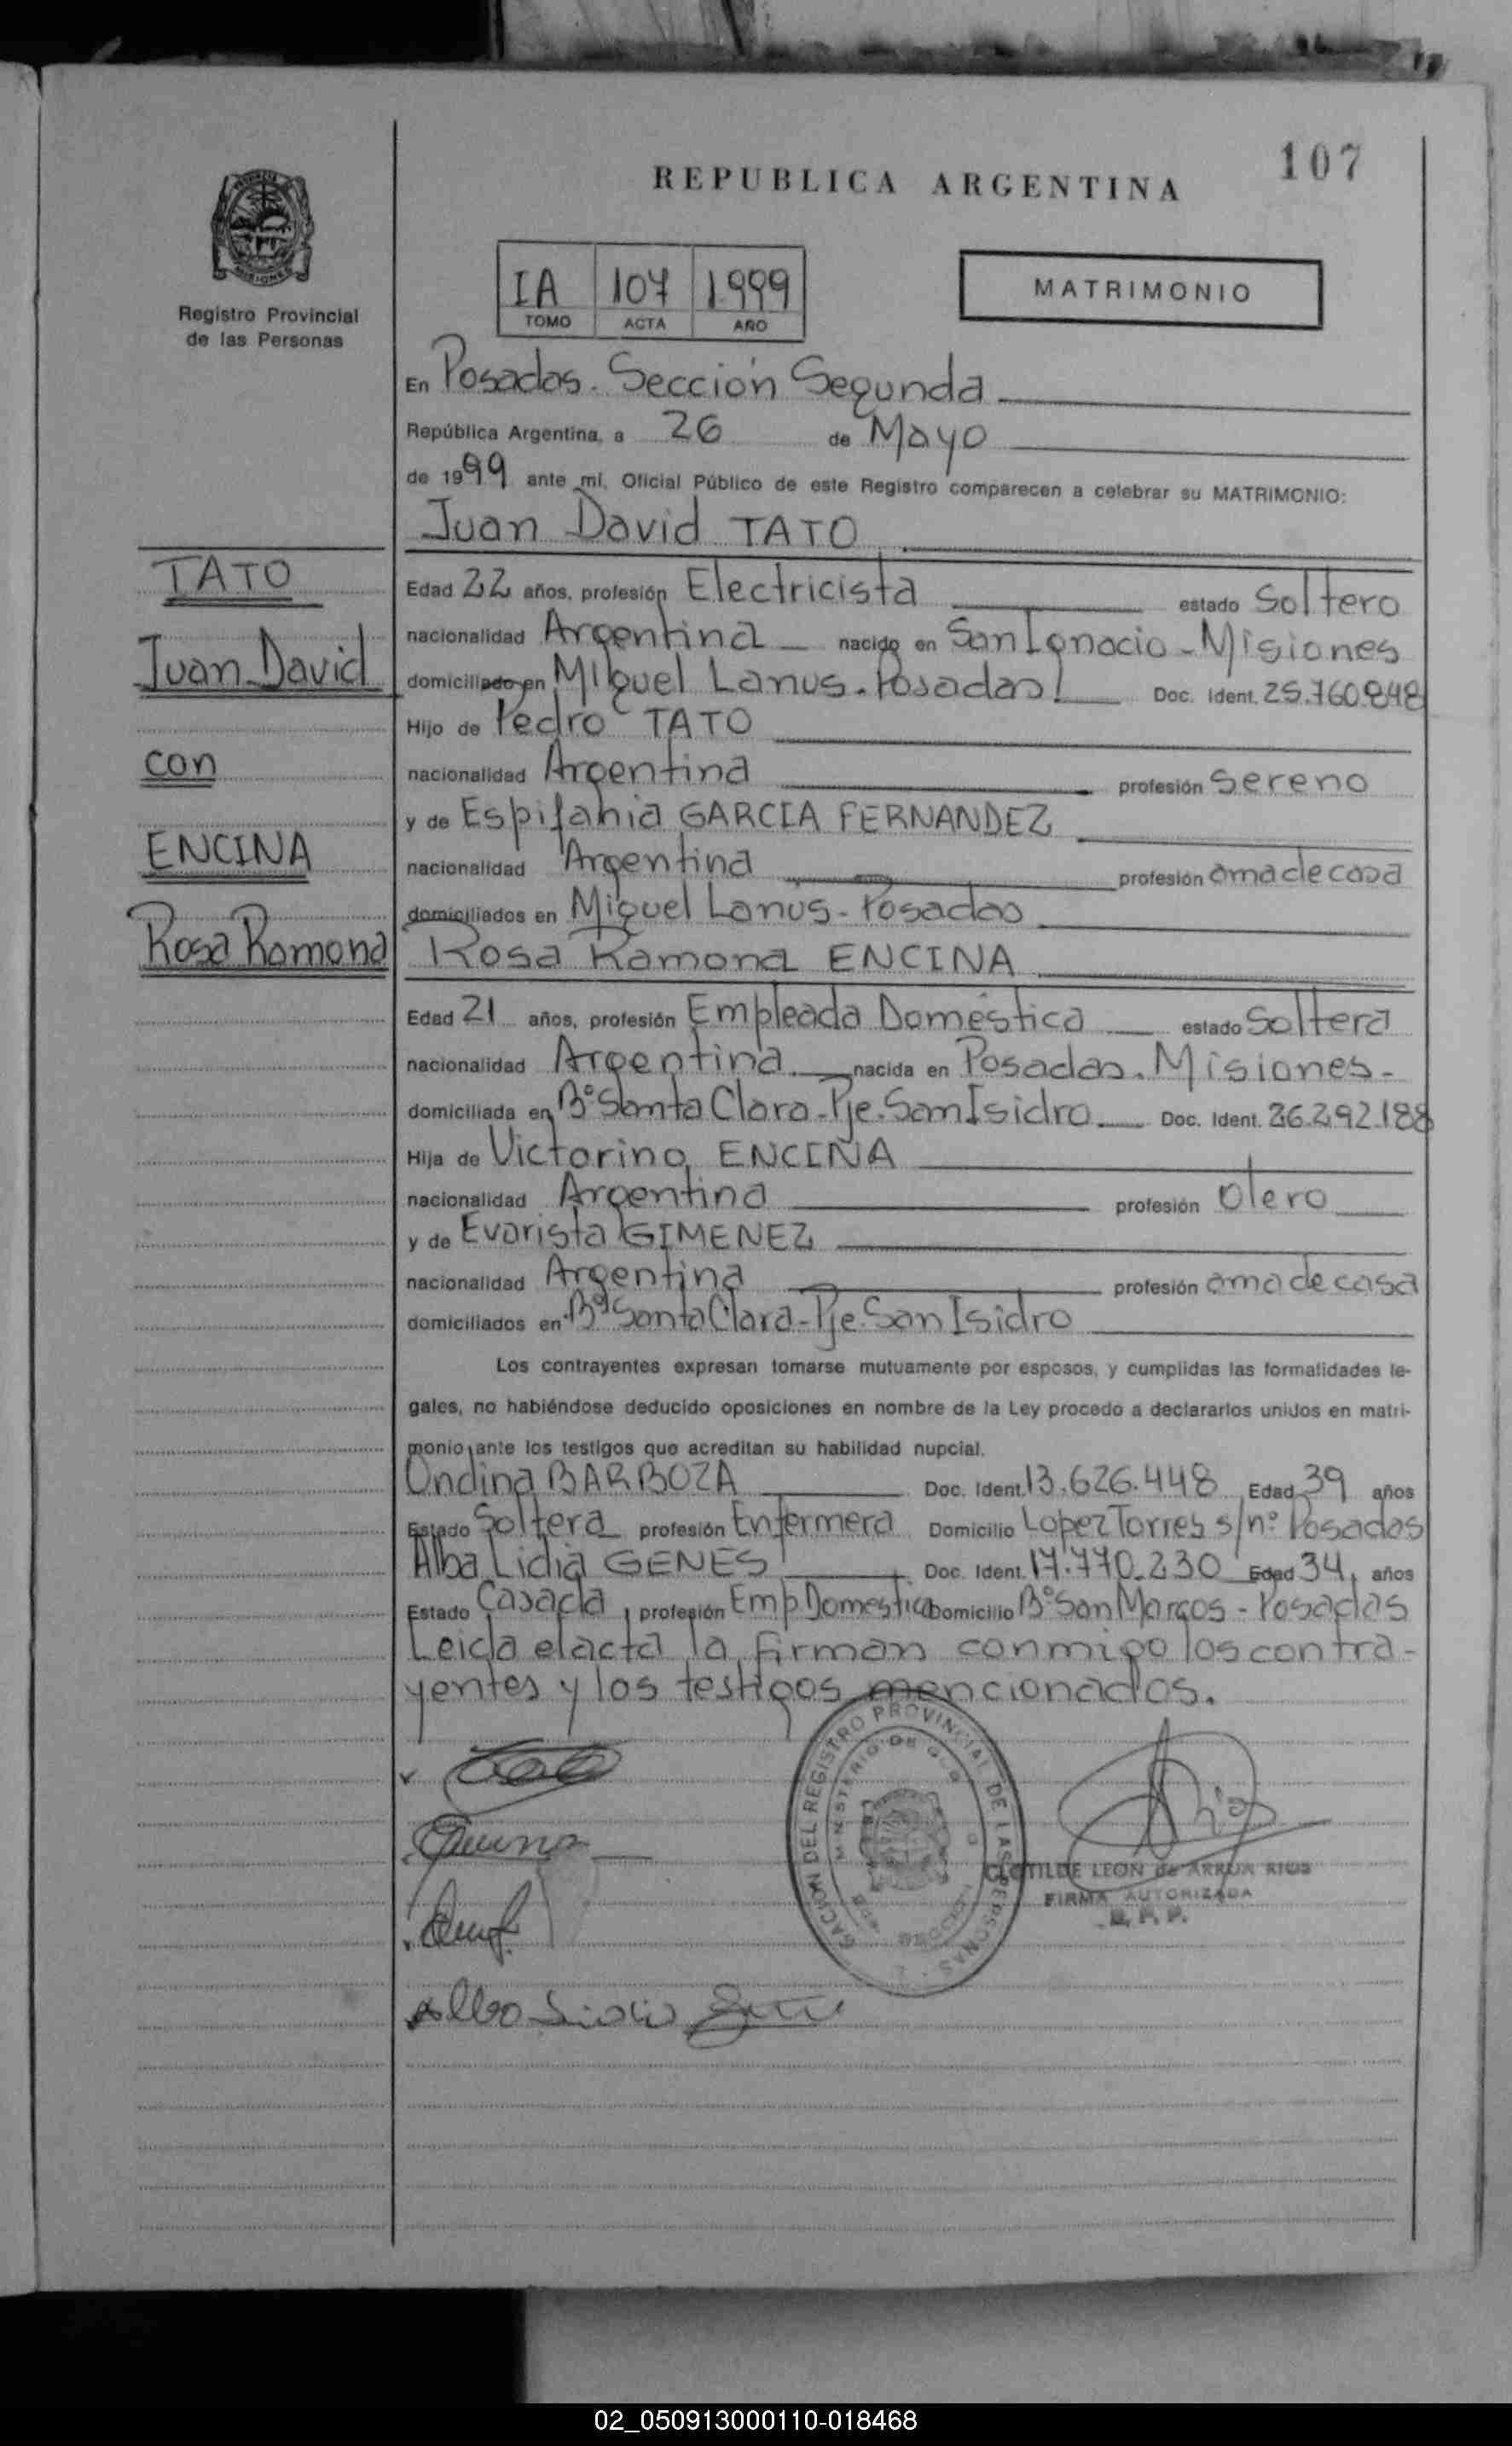 107
REPUBLICA ARGENTINA
IA 107 1999
TOMO ACTA AÑO
MATRIMONIO
Registro Provincial
de las Personas
En Posadas. Sección Segunda
República Argentina, a 26 de Mayo
de 1999 ante mí, Oficial Público de este Registro comparecen a celebrar su MATRIMONIO:
Juan David TATO
TATO
Juan David
con
ENCINA
Rosa Ramona
Edad 22 años, profesión Electricista estado Soltero
nacionalidad Argentina nacido en San Ignacio - Misiones
domiciliado en Miguel Lanus. Posadas Doc. Ident. 25.760.848
Hijo de Pedro TATO
nacionalidad Argentina profesión Sereno
y de Espifahia GARCIA FERNANDEZ
nacionalidad Argentina profesión ama de casa
domiciliados en Miguel Lanus - Posadas
Rosa Ramona ENCINA
Edad 21 años, profesión Empleada Doméstica estado Soltera
nacionalidad Argentina nacida en Posadas. Misiones-
domiciliada en Bº Santa Clara - Pje. San Isidro Doc. Ident. 26.292.188
Hija de Victorino ENCINA
nacionalidad Argentina profesión Olero
y de Evarista GIMENEZ
nacionalidad Argentina profesión ama de casa
domiciliados en Bº Santa Clara - Pje. San Isidro
Los contrayentes expresan tomarse mutuamente por esposos, y cumplidas las formalidades le-
gales, no habiéndose deducido oposiciones en nombre de la Ley procedo a declararlos unidos en matri-
monio ante los testigos que acreditan su habilidad nupcial.
Ondina BARBOZA Doc. Ident. 13.626.448 Edad 39 años
Estado Soltera profesión Enfermera Domicilio Lopez Torres s/nº Posadas
Alba Lidia GENES Doc. Ident. 17.770.230 Edad 34 años
Estado Casada profesión Emp Domestica Domicilio Bº San Marcos - Posadas
Leida el acta la firman conmigo los contra-
yentes y los testigos mencionados.
DEL REGISTRO PROVINCIAL DE LAS PERSONAS
MINISTERIO DE
CLOTILDE LEON de ARRUA RIOS
FIRMA AUTORIZADA
R. P. P.
02_050913000110-018468